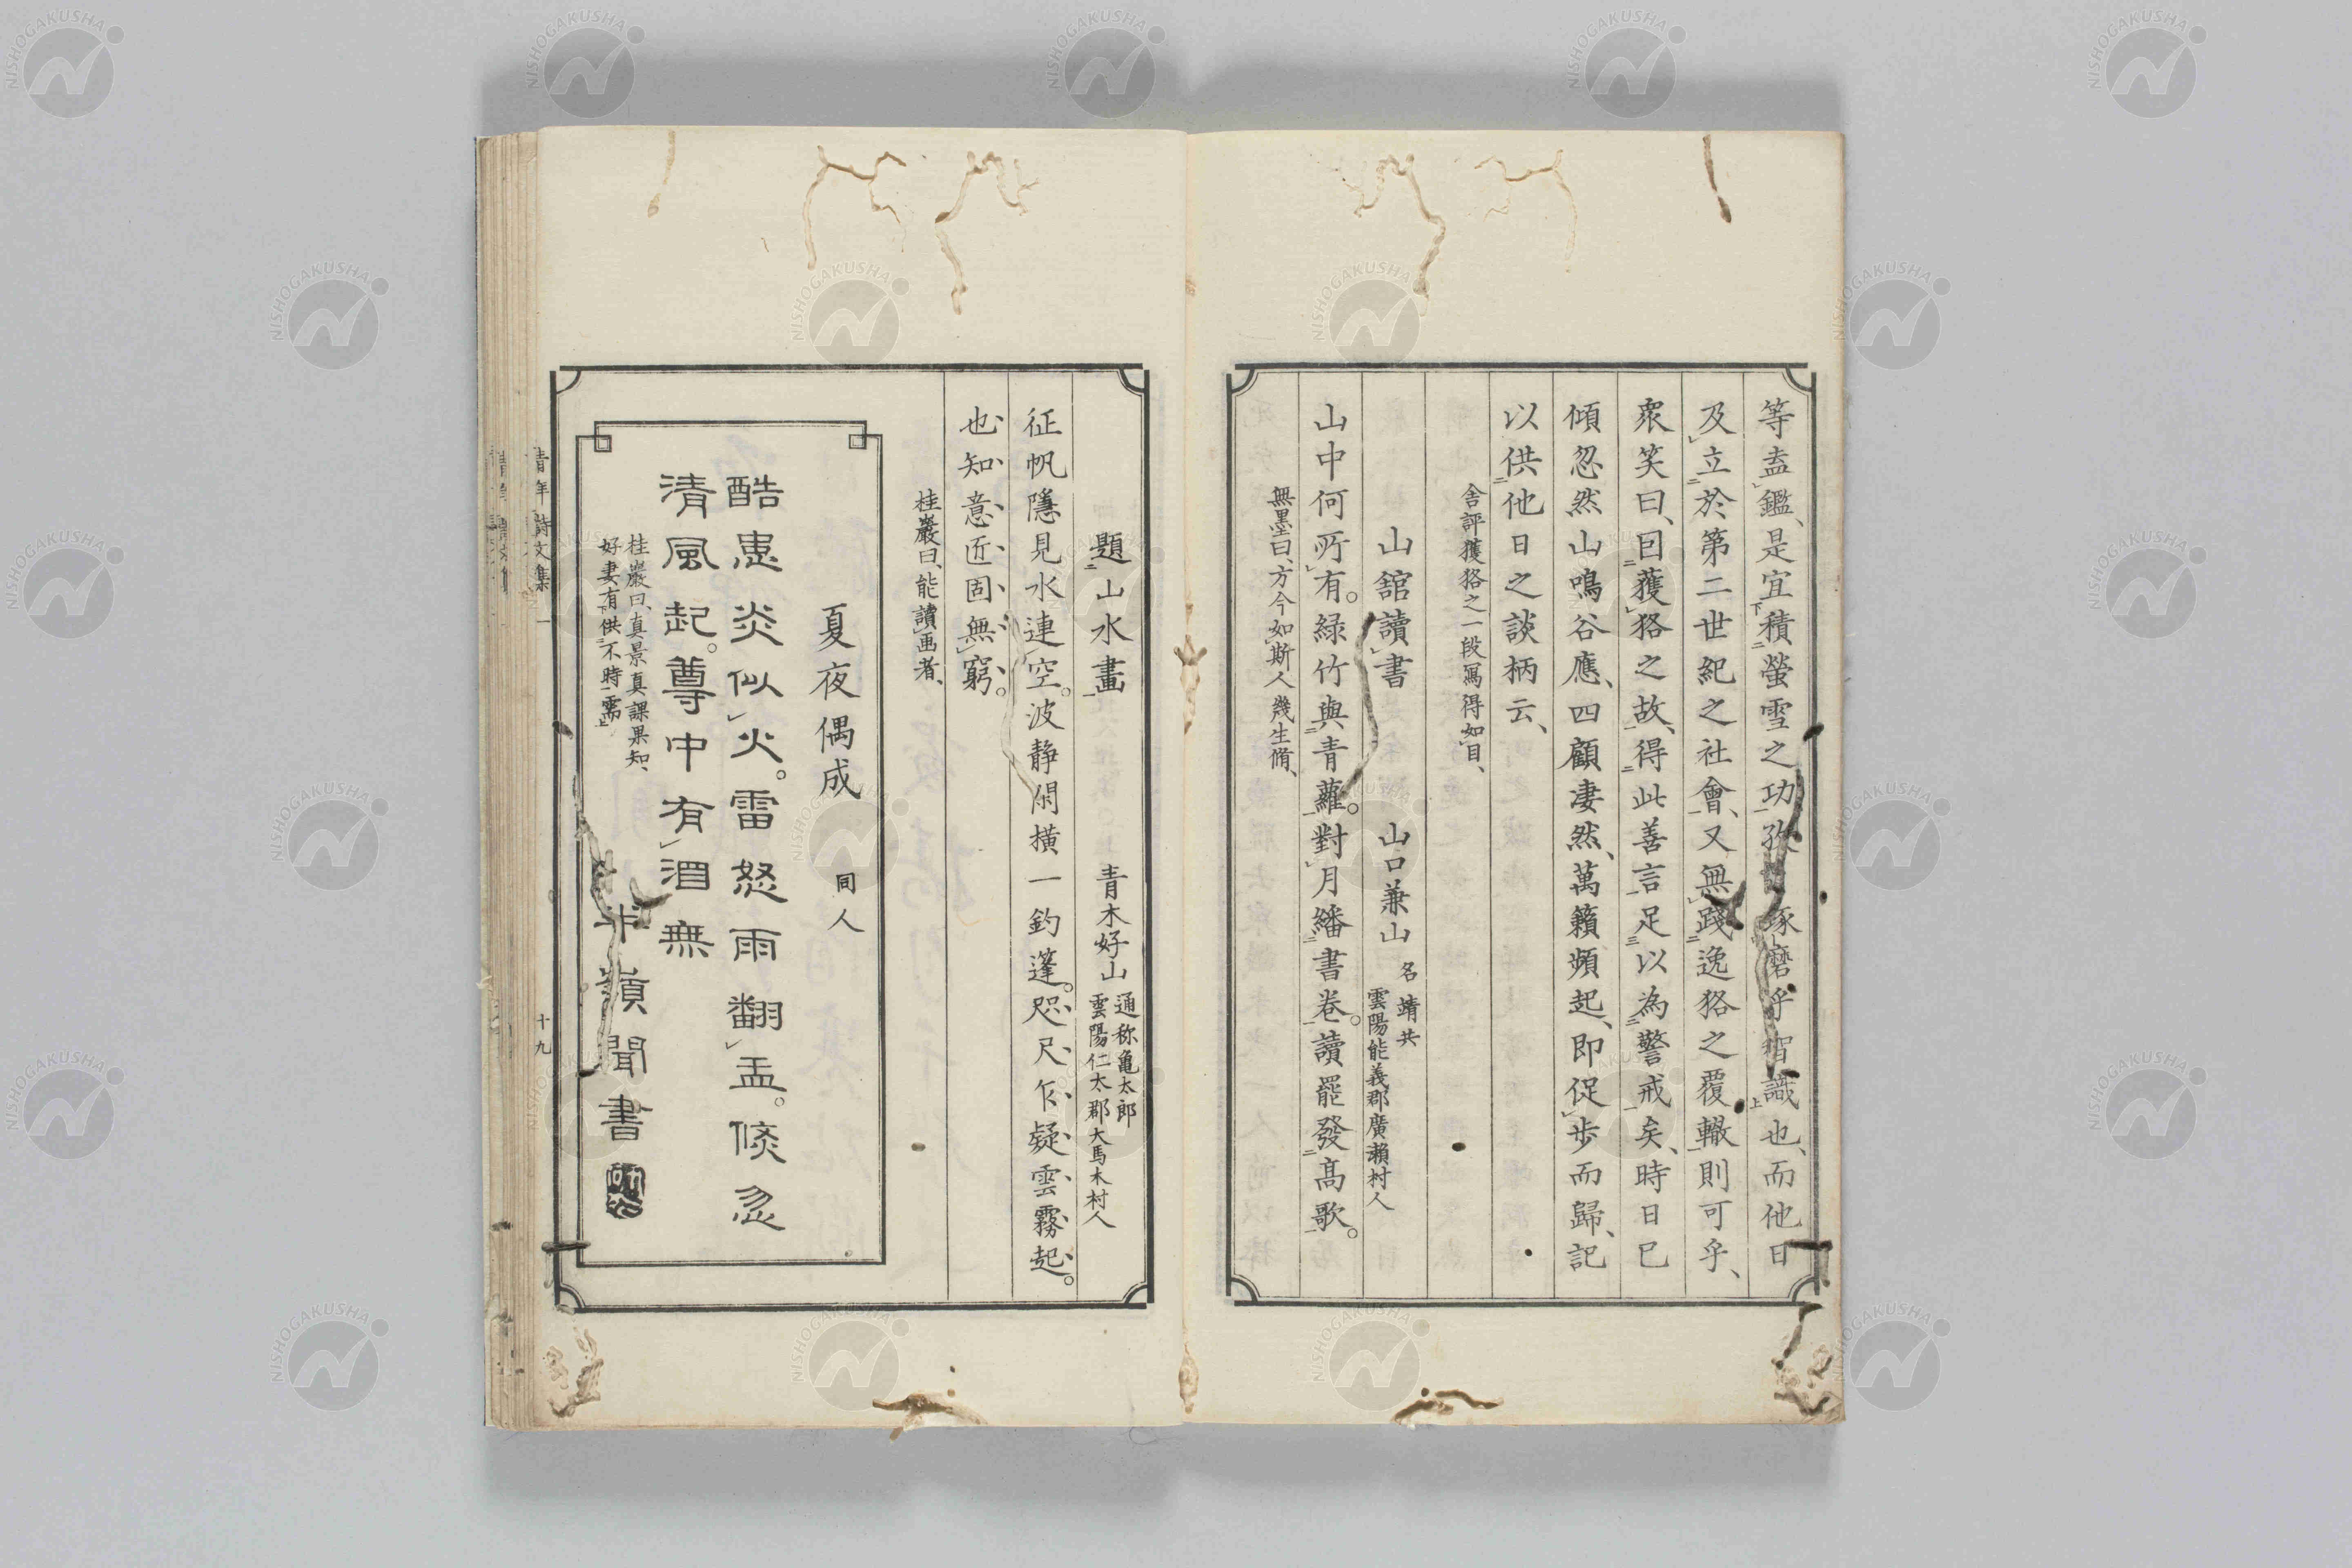 等盍鑑、是宜積螢雪之功、孜 琢磨乎智識也、而他日
及立於第二世紀之社會、又無踐逸狢之覆轍則可乎、
衆笑曰、因獲狢之故、得此善言、足以為警戒矣、時日已
傾忽然山鳴谷應、四顧凄然、萬籟頻起、即促歩而歸、記
以供他日之談柄云、
舍評獲狢之一段寫得如目、
山舘讀書 山口兼山 名靖共
雲陽能義郡廣瀬村人
山中何所有。緑竹與青蘿。對月繙書卷。讀罷發高歌。
無墨曰、方今如斯人幾生脩、
題山水畫 青木好山 通称亀太郎
雲陽仁太郡大馬木村人
征帆隱見水連空。波静閑横一釣篷。咫尺乍疑雲霧起。
也知意匠固無窮。
桂巖曰、能讀画者、
夏夜偶成 同人
酷恚炎似火。雷怒雨翻盂。倐忽
清風起。尊中有酒無
桂巖曰、真景真課果知、
好妻有供不時需
嶺聞書
青年詩文集 一
十九
NISHOGAKUSHA